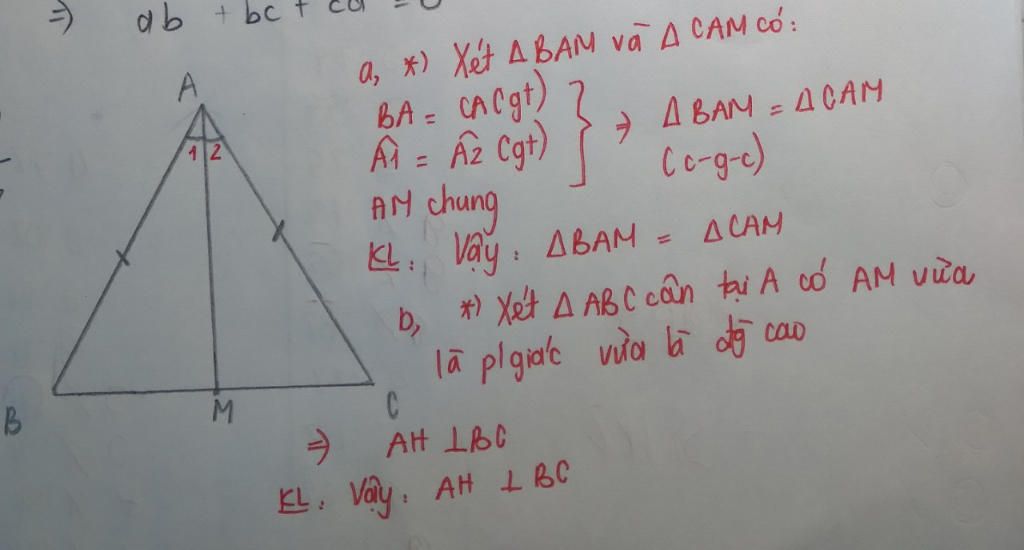 ⇒) ab + bc + ca = 0
A
1 2
B
M
C
a, *) Xét Δ BAM và Δ CAM có:
BA = CA (gt)
Â1 = Â2 (gt)
AM chung
} ⇒ Δ BAM = Δ CAM
(c-g-c)
KL: Vậy: Δ BAM = Δ CAM
b, *) Xét Δ ABC cân tại A có AM vừa
là p/giác vừa là đg cao
⇒ AH ⊥ BC
KL: Vậy: AH ⊥ BC